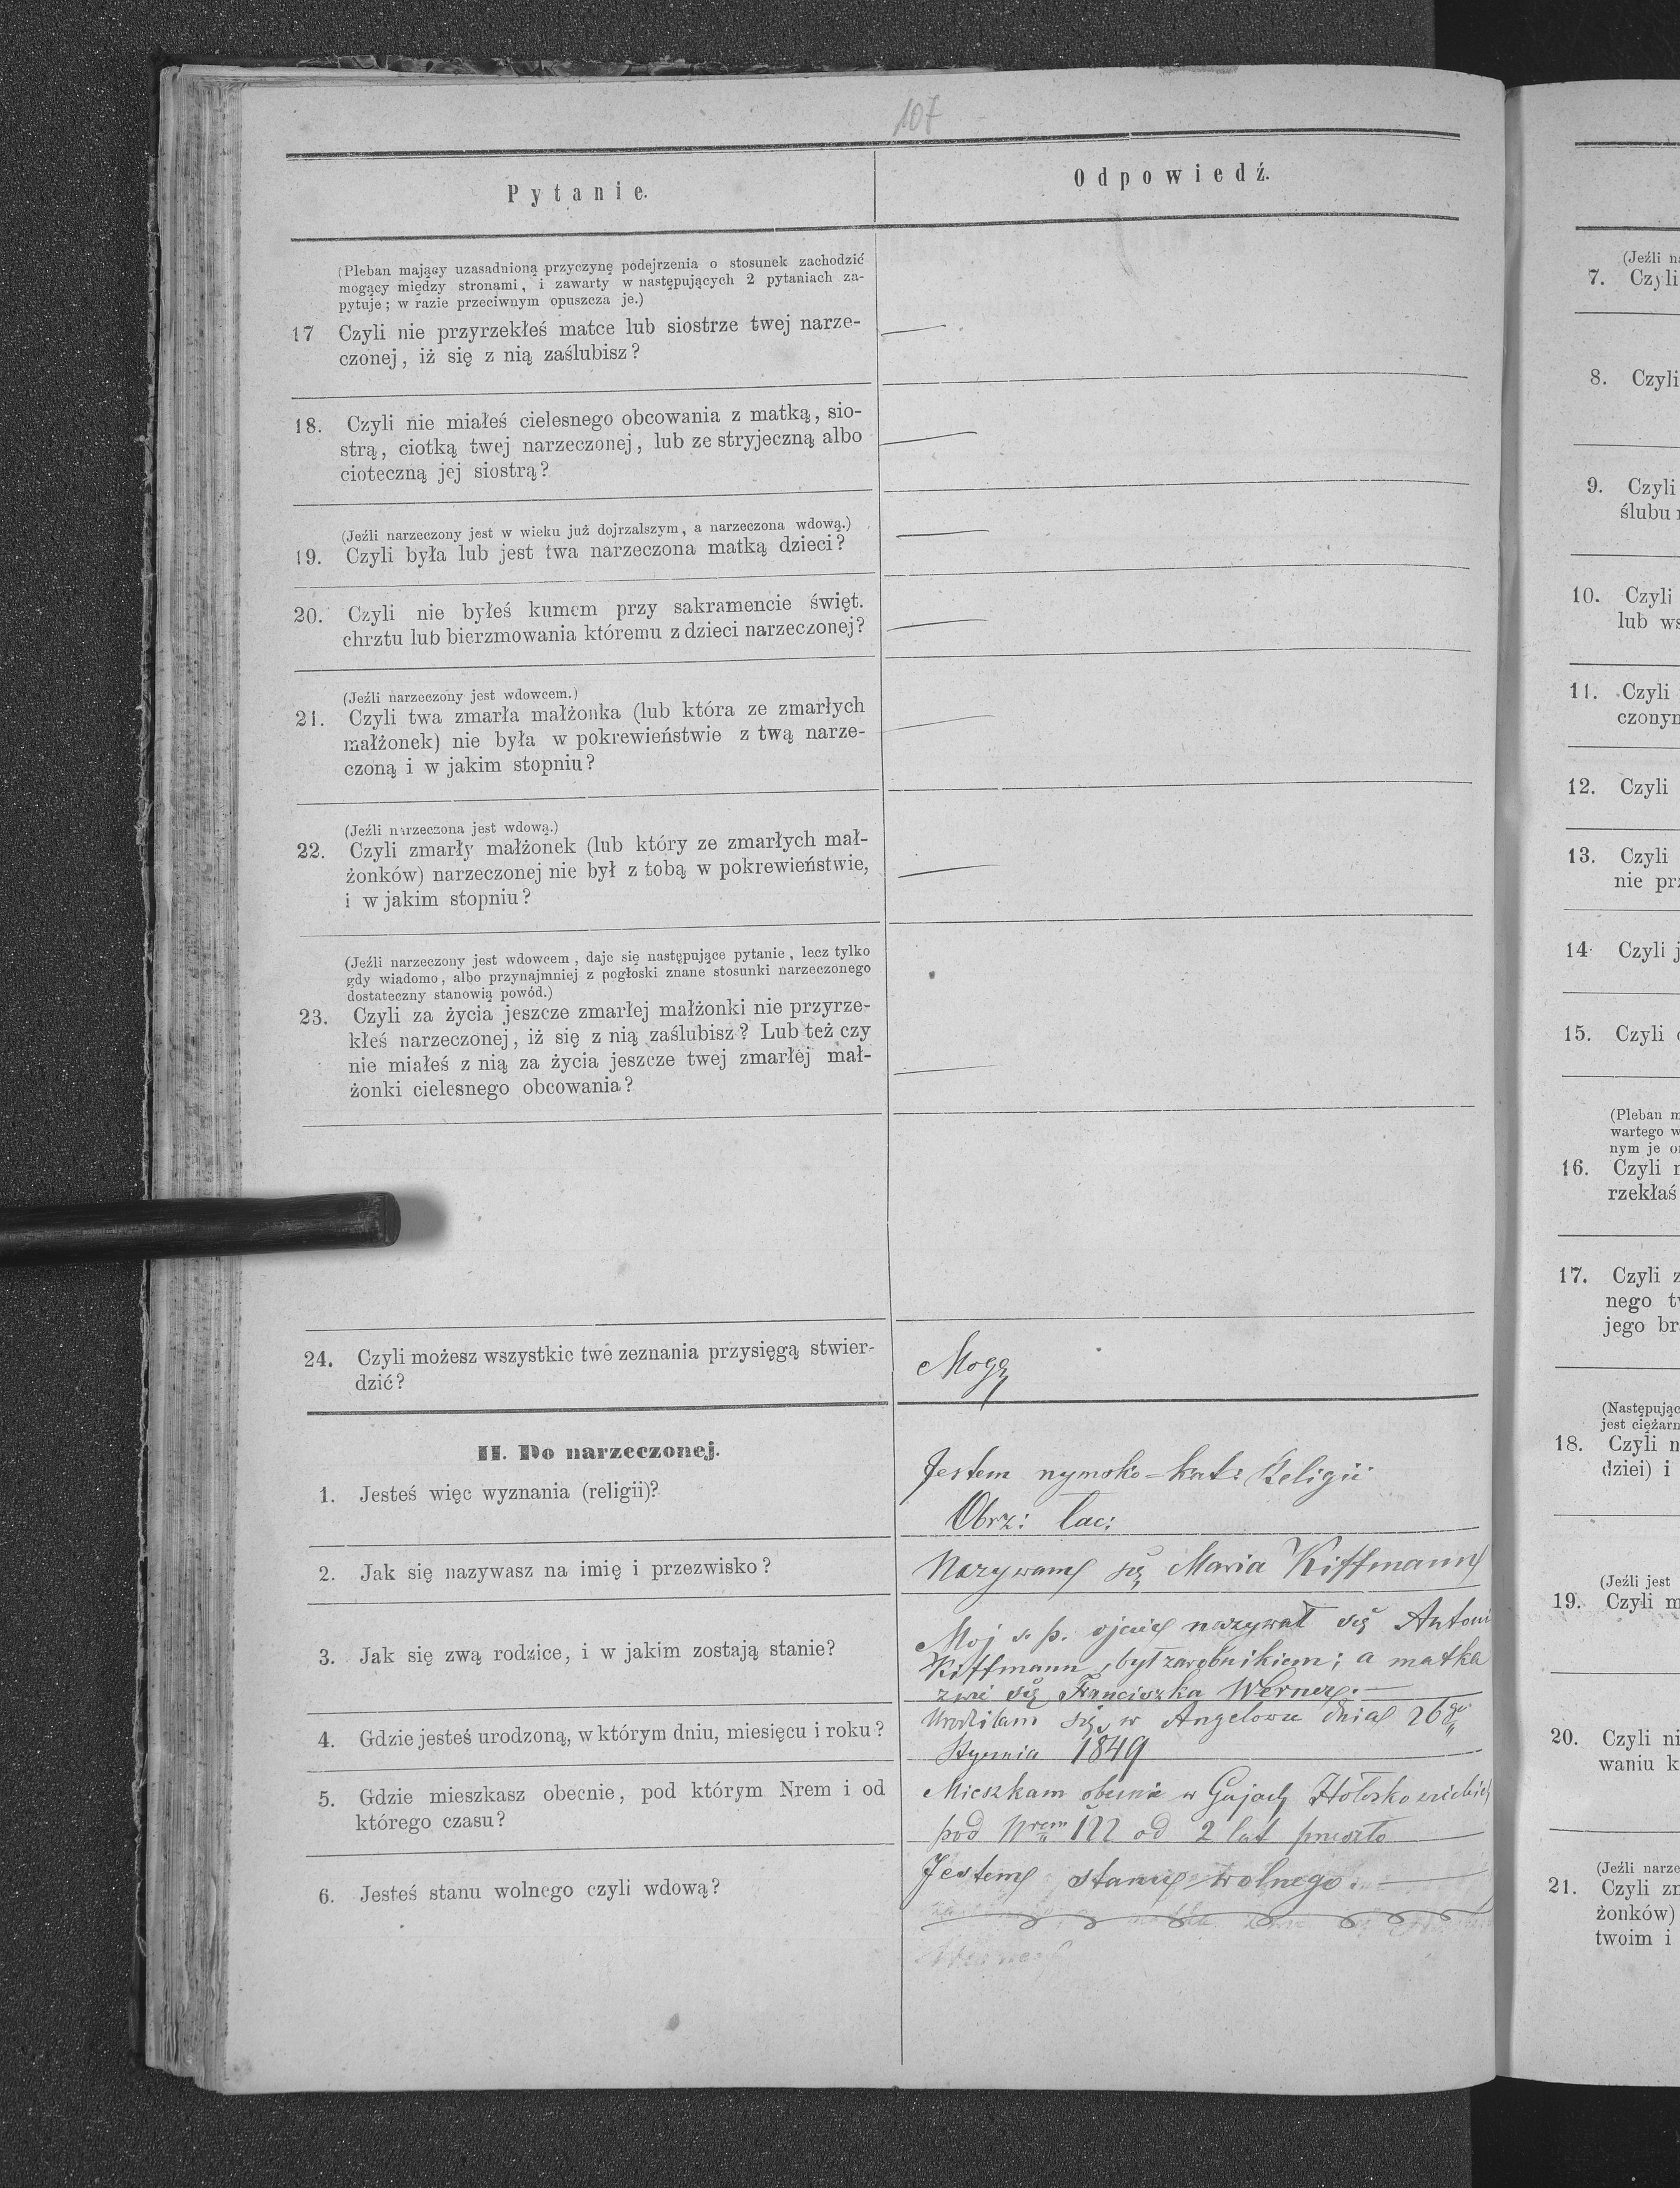 107
Pytanie.
Odpowiedź.
(Pleban mający uzasadnioną przyczynę podejrzenia o stosunek zachodzić
mogący między stronami, i zawarty w następujących 2 pytaniach za-
pytuje; w razie przeciwnym opuszcza je.)
17 Czyli nie przyrzekłeś matce lub siostrze twej narze-
czonej, iż się z nią zaślubisz?
18. Czyli nie miałeś cielesnego obcowania z matką, sio-
strą, ciotką twej narzeczonej, lub ze stryjeczną albo
cioteczną jej siostrą?
(Jeźli narzeczony jest w wieku już dojrzalszym, a narzeczona wdową.)
19. Czyli była lub jest twa narzeczona matką dzieci?
20. Czyli nie byłeś kumem przy sakramencie święt.
chrztu lub bierzmowania któremu z dzieci narzeczonej?
(Jeźli narzeczony jest wdowcem.)
21. Czyli twa zmarła małżonka (lub która ze zmarłych
małżonek) nie była w pokrewieństwie z twą narze-
czoną i w jakim stopniu?
(Jeźli narzeczona jest wdową.)
22. Czyli zmarły małżonek (lub który ze zmarłych mał-
żonków) narzeczonej nie był z tobą w pokrewieństwie,
i w jakim stopniu?
(Jeźli narzeczony jest wdowcem, daje się następujące pytanie, lecz tylko
gdy wiadomo, albo przynajmniej z pogłoski znane stosunki narzeczonego
dostateczny stanowią powód.)
23. Czyli za życia jeszcze zmarłej małżonki nie przyrze-
kłeś narzeczonej, iż się z nią zaślubisz? Lub też czy
nie miałeś z nią za życia jeszcze twej zmarłej mał-
żonki cielesnego obcowania?
24. Czyli możesz wszystkie twe zeznania przysięgą stwier-
dzić?
Mogę
II. Do narzeczonej.
1. Jesteś więc wyznania (religii)?
Jestem rymsko-kat: Religii
Obrz: łac:
2. Jak się nazywasz na imię i przezwisko?
Nazywam się Maria Kiffmann
3. Jak się zwą rodzice, i w jakim zostają stanie?
Moj s. p. ojciec nazywał się Antoni
Kiffmann, był zarobnikiem; a matka
zwie się Franciszka Werner.
4. Gdzie jesteś urodzoną, w którym dniu, miesięcu i roku?
Urodziłam się w Angelowu dnia 26go
Stycznia 1849
5. Gdzie mieszkasz obecnie, pod którym Nrem i od
którego czasu?
Mieszkam obecnie w Gajach Hołoskowieckich
pod Nrem 122 od 2 lat przeszło
6. Jesteś stanu wolnego czyli wdową?
Jestem stanu wolnego.
(Jeźli na
7. Czyli
8. Czyli
9. Czyli
ślubu
10. Czyli
lub ws
11. Czyli
czonym
12. Czyli
13. Czyli
nie prz
14 Czyli j
15. Czyli
(Pleban m
wartego w
nym je o
16. Czyli n
rzekłaś
17. Czyli z
nego tw
jego br
(Następując
jest ciężarn
18. Czyli n
dziei) i
(Jeźli jest
19. Czyli m
20. Czyli ni
waniu k
(Jeźli narze
21. Czyli zm
żonków)
twoim i